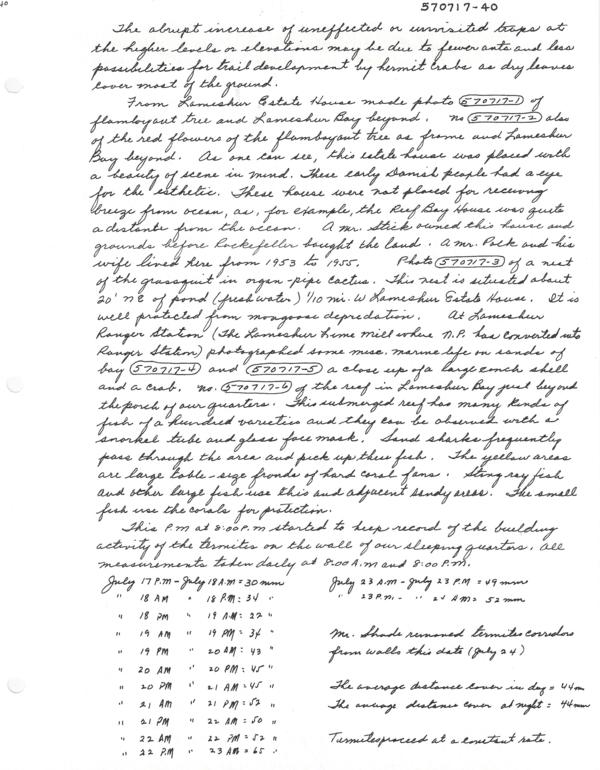 40
570717-40
The abrupt increase of uneffected or unvisited traps at
the higher levels or elevations may be due to fewer ants and less
possibilities for trail development by hermit crabs as dry leaves
cover most of the ground.
From Lameshur Estate House made photo 570717-1 of
flamboyant tree and Lameshur Bay beyond. No 570717-2 also
of the red flowers of the flamboyant tree as frame and Lameshur
Bay beyond. As one can see, this estate house was placed with
a beauty of scene in mind. These early Danish people had a eye
for the esthetic. These house were not placed for receiving
breeze from ocean, as, for example, the Reef Bay House was quite
a distante from the ocean. A Mr. Stick owned this house and
grounds before Rockefeller bought the land. A Mr. Polk and his
wife lived here from 1953 to 1955. Photo 570717-3 of a nest
of the grassquit in organ-pipe cactus. This nest is situated about
20' NE of pond (fresh water) 1/10 mi. W Lameshur Estate House. It is
well protected from mongoose depredation. At Lameshur
Ranger Station (The Lameshur Lime Mill where N.P. has converted into
Ranger Station) photographed some misc. marine life on sands of
bay 570717-4 and 570717-5 a close up of a large conch shell
and a crab. No. 570717-6 of the reef in Lameshur Bay just beyond
the porch of our quarters. This submerged reef has many kinds of
fish of a hundred varieties and they can be observed with a
snorkel tube and glass face mask. Sand sharks frequently
pass through the area and pick up their fish. The yellow areas
are large table-size fronds of hard coral fans. Sting ray fish
and other large fish use this and adjacent sandy areas. The small
fish use the corals for protection.
This P.M at 8:00 P.M started to keep record of the building
activity of the termites on the wall of our sleeping quarters. All
measurements taken daily at 8:00 A.M and 8:00 P.M.
July 17 P.M - July 18 A.M = 30 mm
" 18 AM " 18 P.M: 34 "
" 18 PM " 19 A.M: 22 "
" 19 AM " 19 PM: 34 "
" 19 PM " 20 AM: 43 "
" 20 AM " 20 PM: 45 "
" 20 PM " 21 AM: 45 "
" 21 AM " 21 PM: 52 "
" 21 PM " 22 AM: 50 "
" 22 AM " 22 PM: 52 "
" 22 P.M " 23 AM: 65 "
July 23 A.M - July 23 P.M = 49 mm
" 23 P.M. - " 24 A.M = 52 mm
Mr. Shade removed termites corridors
from walls this date (July 24)
The average distance cover in day = 44 mm
The average distance cover at night = 44 mm
Termites proceed at a constant rate.